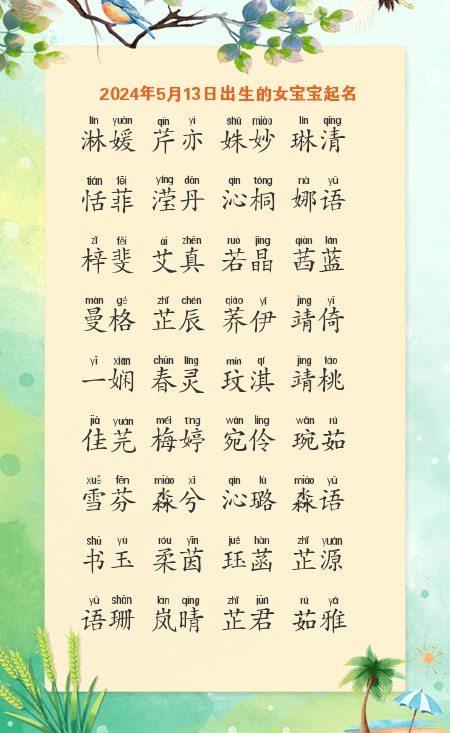 2024年5月13日出生的女宝宝起名
lín yuàn qín yì shū miào lín qīng
淋媛 芹亦 姝妙 琳清
tián fēi yíng dān qìn tóng nà yǔ
恬菲 滢丹 沁桐 娜语
zǐ fěi ài zhēn ruò jīng qiàn lán
梓斐 艾真 若晶 茜蓝
màn gé zhǐ chén qiáo yī jìng yǐ
曼格 芷辰 荞伊 靖倚
yī xián chūn líng mín qí jìng táo
一娴 春灵 玟淇 靖桃
jiā yuán méi tíng wǎn líng wǎn rú
佳芫 梅婷 宛伶 琬茹
xuě fēn miǎo xī qìn lù miǎo yǔ
雪芬 淼兮 沁璐 淼语
shū yù róu yīn jué hàn zhǐ yuán
书玉 柔茵 珏菡 芷源
yǔ shān lán qíng zhǐ jūn rú yǎ
语珊 岚晴 芷君 茹雅